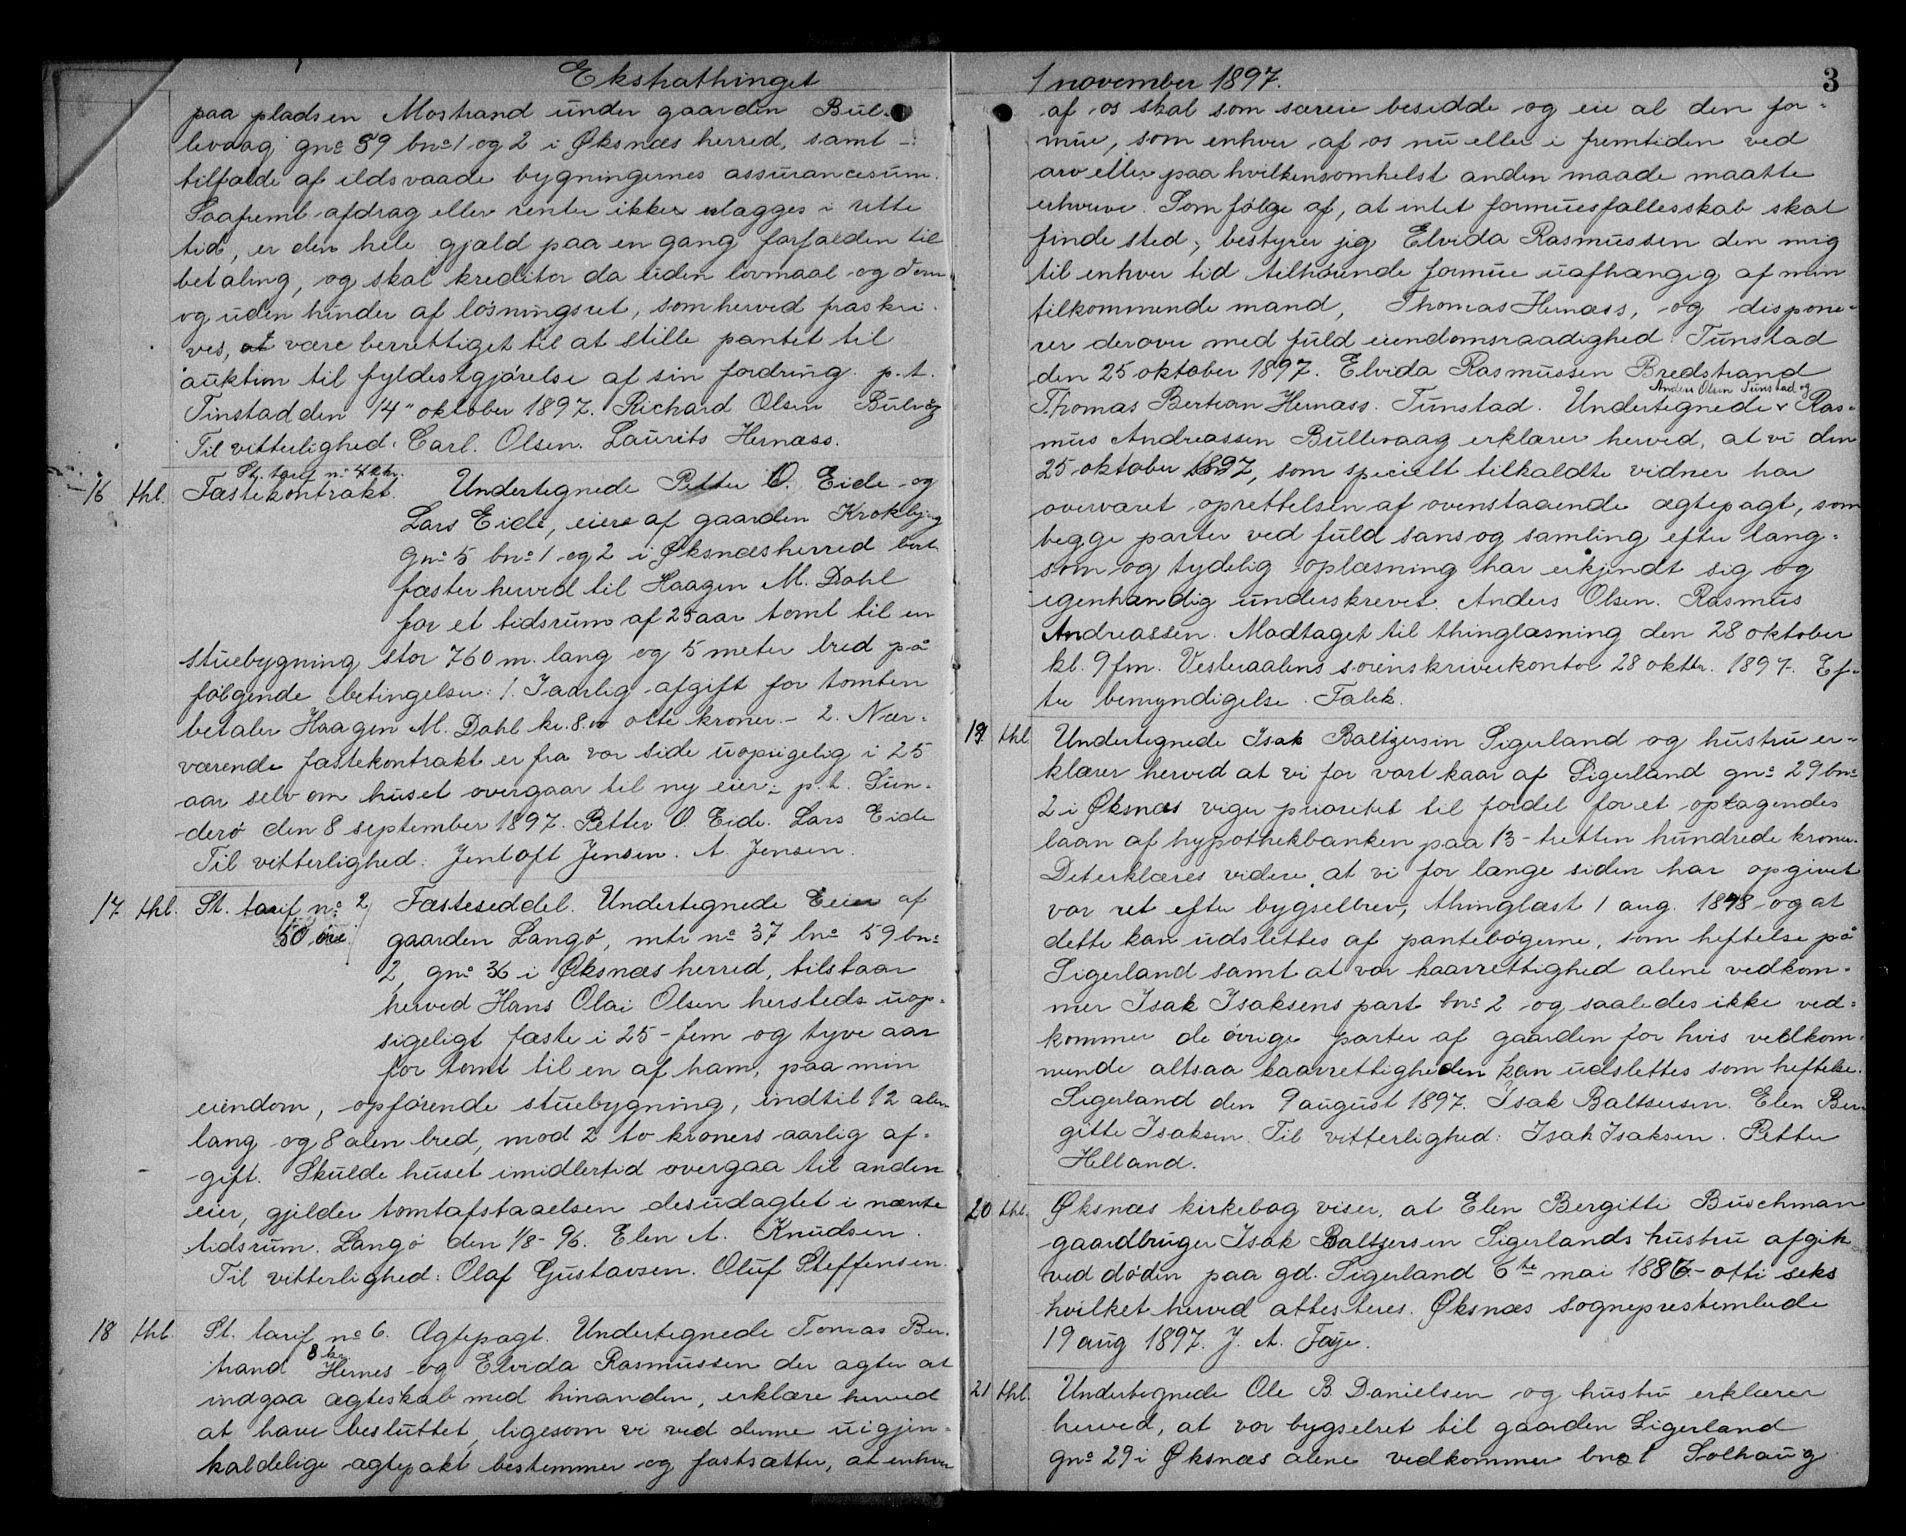 Ekstrathinget
paa pladsen Mostrand under gaarden Bul-
levaag gno 59 bno 1 og 2 i Øksnæs herred, samt i
tilfælde af ildsvaade bygningernes assurancesum.
Saafremt afdrag eller renter ikke erlægges i rette
tid, er den hele gjæld paa en gang forfalden til
betaling, og skal kreditor da uden lovmaal og dom
og uden hinder af løsningsret, som herved fraskri-
ves, være berettiget til at stille pantet til
auktion til fyldestgjørelse af sin fordring. p.t.
Tinstad den 14 oktober 1897. Richard Olsen Bulvåg
Til vitterlighed. Carl. Olsen. Laurits Hernæss.
St. tarif no 4 kr.
16 thl. Fæstekontrakt. Undertegnede Petter O. Eide og
Lars Eide, eiere af gaarden Krokbjerg
gno 5 bno 1 og 2 i Øksnæs herred bort
fæster herved til Haagen M. Dahl
for et tidsrum af 25 aar tomt til en
stuebygning stor 760 m. lang og 5 meter bred på
følgende betingelser: 1. I aarlig afgift for tomten
betaler Haagen M. Dahl kr. 8.00 otte kroner. - 2. Nær-
værende fæstekontrakt er fra vor side uopsigelig i 25
aar selv om huset overgaar til ny eier. p.t. Tun-
derø den 8 september 1897. Petter O. Eide. Lars Eide
Til vitterlighed: Jentoft Jensen. A. Jensen.
17 thl. St. tarif no 2 Fæsteseddel. Undertegnede Eier af
50 øre. gaarden Langø, mtr no 37 lno 59 bno
2, gno 36 i Øksnæs herred, tilstaar
herved Hans Olai Olsen hersteds uop-
sigeligt fæste i 25 - fem og tyve aar
for tomt til en af ham, paa min
eiendom, opførende stuebygning, indtil 12 alen
lang og 8 alen bred, mod 2 to kroners aarlig af-
gift. Skulde huset imidlertid overgaa til anden
eier, gjelder tomtafstaaelsen desudagtet i nævnte
tidsrum. Langø den 1/8-96. Elen A. Knudsen.
Til vitterlighed: Olaf Gustavsen. Oluf Steffensen.
18 thl. St. tarif no 6. Ægtepagt. Undertegnede Tomas Ber-
8 kr
trand Hernes og Elvida Rasmussen der agter at
indgaa ægteskab med hinanden, erklære herved
at have besluttet, ligesom vi ved denne uigjen-
kaldelige ægtepakt bestemmer og fastsætter, at enhver
1 november 1897. 3
af os skal som særeie besidde og eie al den for-
mue, som enhver af os nu eller i fremtiden ved
arv eller paa hvilkensomhelst anden maade maatte
erhverve. Som følge af, at intet formuesfællesskab skal
finde sted, bestyrer jeg Elvida Rasmussen den mig
til enhver tid tilhørende formue uafhængig af min
tilkommende mand, Thomas Hernæss, og dispone-
rer derover med fuld eiendomsraadighed. Tunstad
den 25 oktober 1897. Elvida Rasmussen Bredstrand
Anders Olsen Tunstad og
Thomas Bertran Hernæss. Tunstad. Undertegnede Ras-
mus Andreassen Bullevaag erklærer herved, at vi den
25 oktober 1897, som specielt tilkaldte vidner har
overværet oprettelsen af ovenstaaende ægtepagt, som
begge parter ved fuld sans og samling efter lang-
som og tydelig oplæsning har erkjendt sig og
egenhændig underskrevet. Anders Olsen. Rasmus
Andreassen. Modtaget til thinglæsning den 28 oktober
kl. 9 fm. Vesteraalens sorenskriverkontor 28 oktbr. 1897. Ef-
ter bemyndigelse. Falck.
19 thl Undertegnede Isak Baltzersen Sigerland og hustru er-
klærer herved at vi for vort kaar af Sigerland gno 29 bno
2 i Øksnæs viger prioretet til fordel for et optagendes
laan af hypothekbanken paa 13 - tretten hundrede kroner.
Det erklæres videre, at vi for længe siden har opgivet
vor ret efter bygselbrev, thinglæst 1 aug. 1848 og at
dette kan udslettes af pantebøgerne, som heftelse på
Sigerland samt at vor kaarrettighed alene vedkom-
mer Isak Isaksens part bno 2 og saaledes ikke ved-
kommer de øvrige parter af gaarden for hvis vedkom-
mende altsaa kaarrettigheden kan udslettes som heftelse.
Sigerland den 9 august 1897. Isak Baltsersen. Elen Ber-
gitte Isaksen. Til vitterlighed: Isak Isaksen. Petter
Helland.
20 thl. Øksnæs kirkebog viser, at Elen Bergitte Buschman
gaardbruger Isak Baltzersen Sigerlands hustru afgik
ved døden paa gd. Sigerland 6te mai 1886 - otti seks
hvilket herved attesteres. Øksnæs sogneprestembede
19 aug 1897. J. A. Faye.
21 thl. Undertegnede Ole B. Danielsen og hustru erklærer
herved, at vor bygselret til gaarden Sigerland
gno 29 i Øksnæs alene vedkommer bno 1 Solhaug